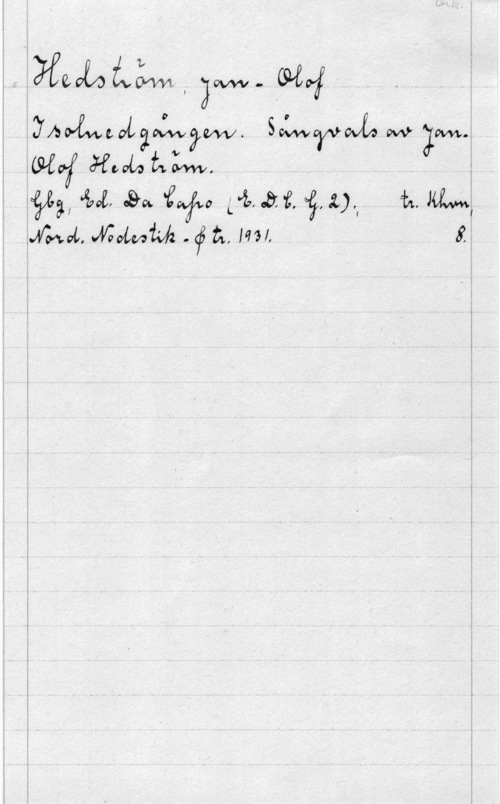 Ork.
Hedström, Jan-Olof
I solnedgången. Sångvals av Jan-
Olof Hedström.
Gbg, Ed. Da Capo (E.D.C. G. 2).; tr. Khvn,
Nord. Nodestik- & tr. 1931. 8.